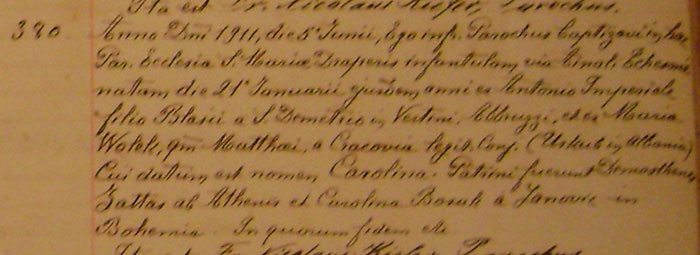 Ita est Fr. Nicolaus Kiefer, Parochus.
380 Anno Dni 1911, die 5ª Junii, Ego infr. Parochus baptizavi in hac
Par. Ecclesia S. Mariæ Draperis infantulam, via Tinal. Echesme
natam, die 21ª Januarii ejusdem anni ex Antonio Imperiale
filio Blasii a S. Demetrio in Vestini, Abbruzzi, et ex Maria
qm Matthæi, a Cracovia legit. Conj. (Uskub in Albania)
Cui datum est nomen Carolina. Patrini fuerunt Demosthenes
Zattas ab Athenis et Carolina a Janovic in
Bohemia. In quorum fidem etc
Ita est Fr. Nicolaus Kiefer Parochus